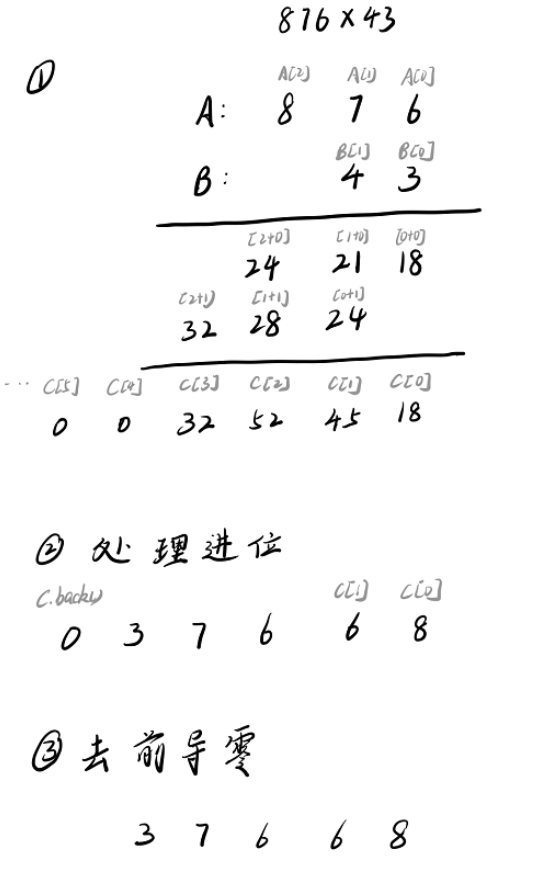 876×43
①
A[2] A[1] A[0]
A: 8 7 6
B[1] B[0]
B: 4 3
[2+0] [1+0] [0+0]
24 21 18
[2+1] [1+1] [0+1]
32 28 24
... C[5] C[4] C[3] C[2] C[1] C[0]
0 0 32 52 45 18
② 处理进位
C.back() C[1] C[0]
0 3 7 6 6 8
③ 去前导零
3 7 6 6 8